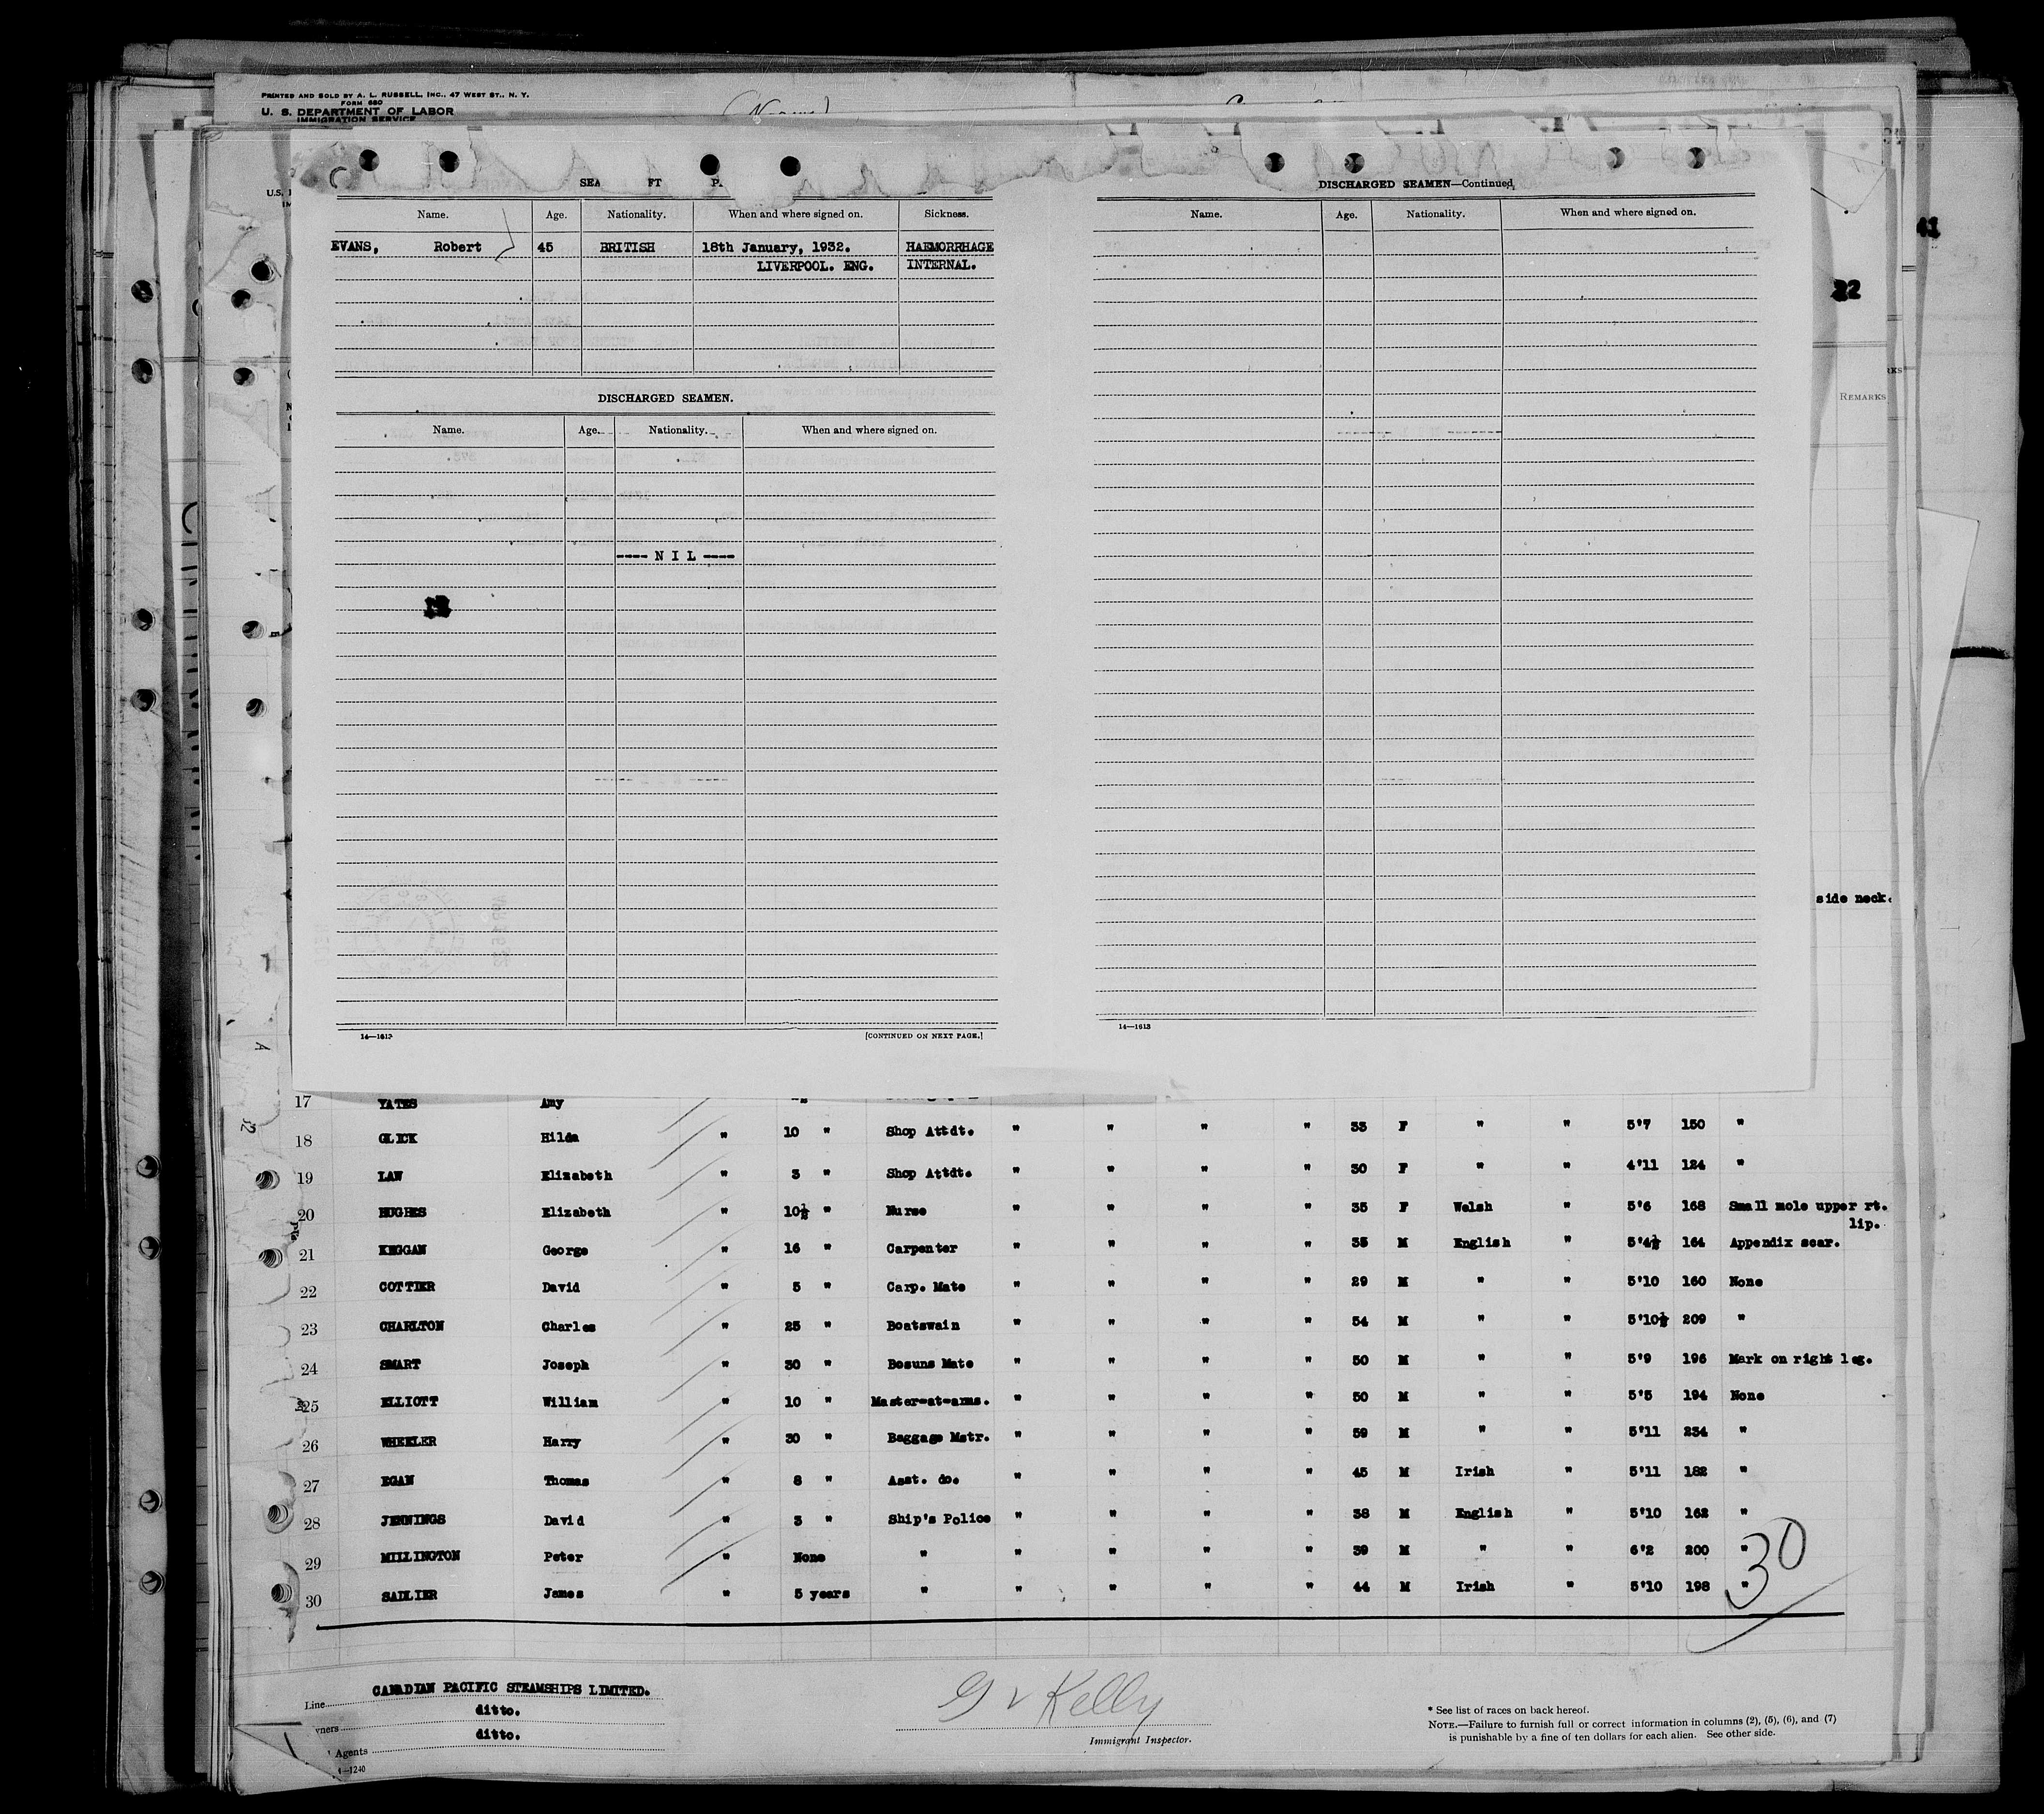 PRINTED AND SOLD BY A. L. RUSSELL, INC., 47 WEST ST., N. Y.
FORM 680
U. S. DEPARTMENT OF LABOR
IMMIGRATION SERVICE
DISCHARGED SEAMEN—Continued
Name. Age. Nationality. When and where signed on. Sickness.
EVANS, Robert 45 BRITISH 18th January, 1932. HAEMORRHAGE
LIVERPOOL. ENG. INTERNAL.
DISCHARGED SEAMEN.
Name. Age. Nationality. When and where signed on.
---- N I L ----
14—1613 [CONTINUED ON NEXT PAGE.]
Name. Age. Nationality. When and where signed on.
14—1613
41
22
REMARKS
side neck.
17 YATES Amy
18 GLICK Hilda " 10 " Shop Attdt. " " " " 33 F " " 5'7 150 "
19 LAW Elizabeth " 3 " Shop Attdt. " " " " 30 F " " 4'11 124 "
20 HUGHES Elizabeth " 10½ " Nurse " " " " 35 F Welsh " 5'6 168 Small mole upper rt.
lip.
21 KEGGAN George " 16 " Carpenter " " " " 35 M English " 5'4½ 164 Appendix scar.
22 COTTIER David " 5 " Carp. Mate " " " " 29 M " " 5'10 160 None
23 CHARLTON Charles " 25 " Boatswain " " " " 54 M " " 5'10½ 209 "
24 SMART Joseph " 30 " Bosuns Mate " " " " 50 M " " 5'9 196 Mark on right leg.
25 ELLIOTT William " 10 " Master-at-arms. " " " " 50 M " " 5'5 194 None
26 WHEELER Harry " 30 " Baggage Mstr. " " " " 59 M " " 5'11 234 "
27 EGAN Thomas " 8 " Asst. do. " " " " 45 M Irish " 5'11 182 "
28 JENNINGS David " 3 " Ship's Police " " " " 38 M English " 5'10 162 "
29 MILLINGTON Peter " None " " " " " 39 M " " 6'2 200 "
30 SADLIER James " 5 years " " " " " 44 M Irish " 5'10 198 "
30
Line CANADIAN PACIFIC STEAMSHIPS LIMITED.
ditto.
Agents ditto.
G V Kelly
Immigrant Inspector.
* See list of races on back hereof.
NOTE.—Failure to furnish full or correct information in columns (2), (5), (6), and (7)
is punishable by a fine of ten dollars for each alien. See other side.